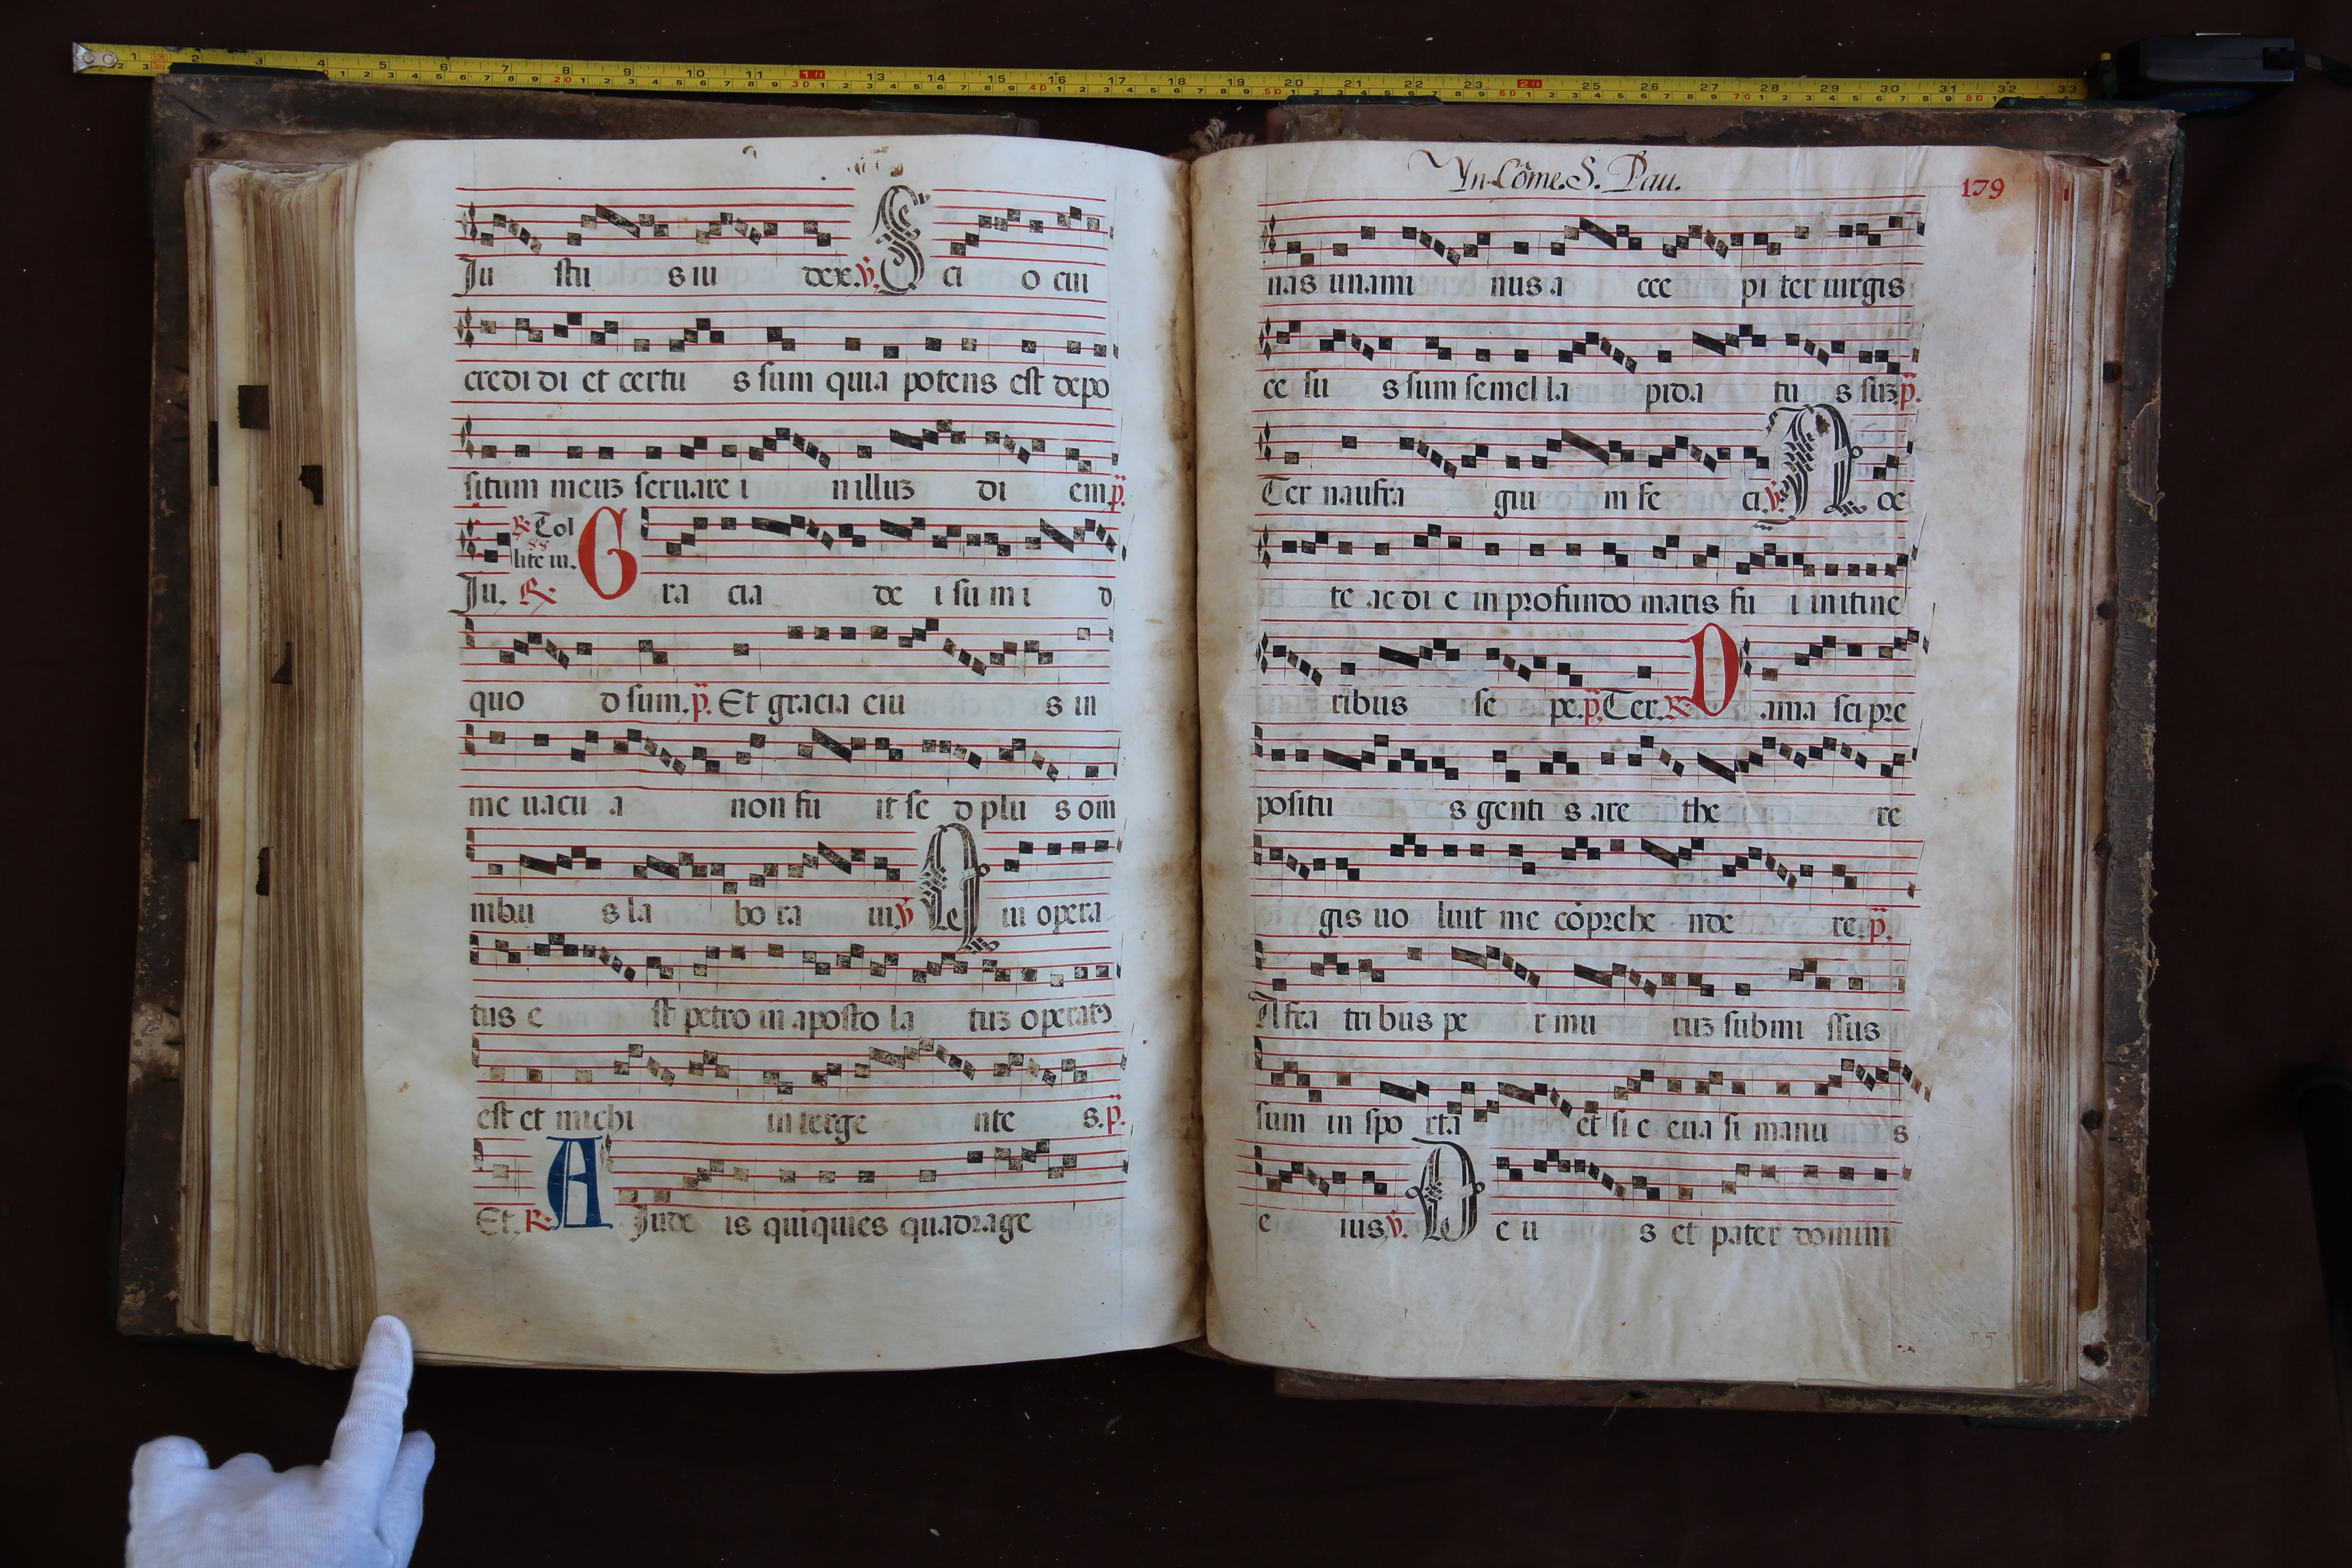 Ju stu s iu dex. ℣. S ci o cui
credi di et certu s sum quia potens est depo
situm meuʒ seruare i n illuʒ di em. p̄.
℟. Tol
lite iu.
Ju. ℟. G ra cia de i su m i d
quo d sum. p̄. Et gracia eiu s in
me uacu a non fu it se d plu s om
nibu s la bo ra ui. ℣. Q ui opera
tus e st petro in aposto la tuʒ operatꝰ
est et michi in terge nte s. p̄.
Et. ℟. A Jude is quiquies quadrage
Yn Cōme. S. Pau.
179
nas unami nus a cce pi ter uirgis
ce su s sum semel la pida tu s suʒ p̄.
Ter naufra giu m fe ci. ℣. N oc
te ac di e in profundo maris fu i in itine
ribus se pe. p̄. Ter. ℟. D ama sci pre
positu s genti s are the re
gis uo luit me cōprehe nde re. p̄.
A fra tri bus pe r mu ruʒ submi ssus
sum in spo rta et si c eua si manu s
e ius. ℣. D e u s et pater domini